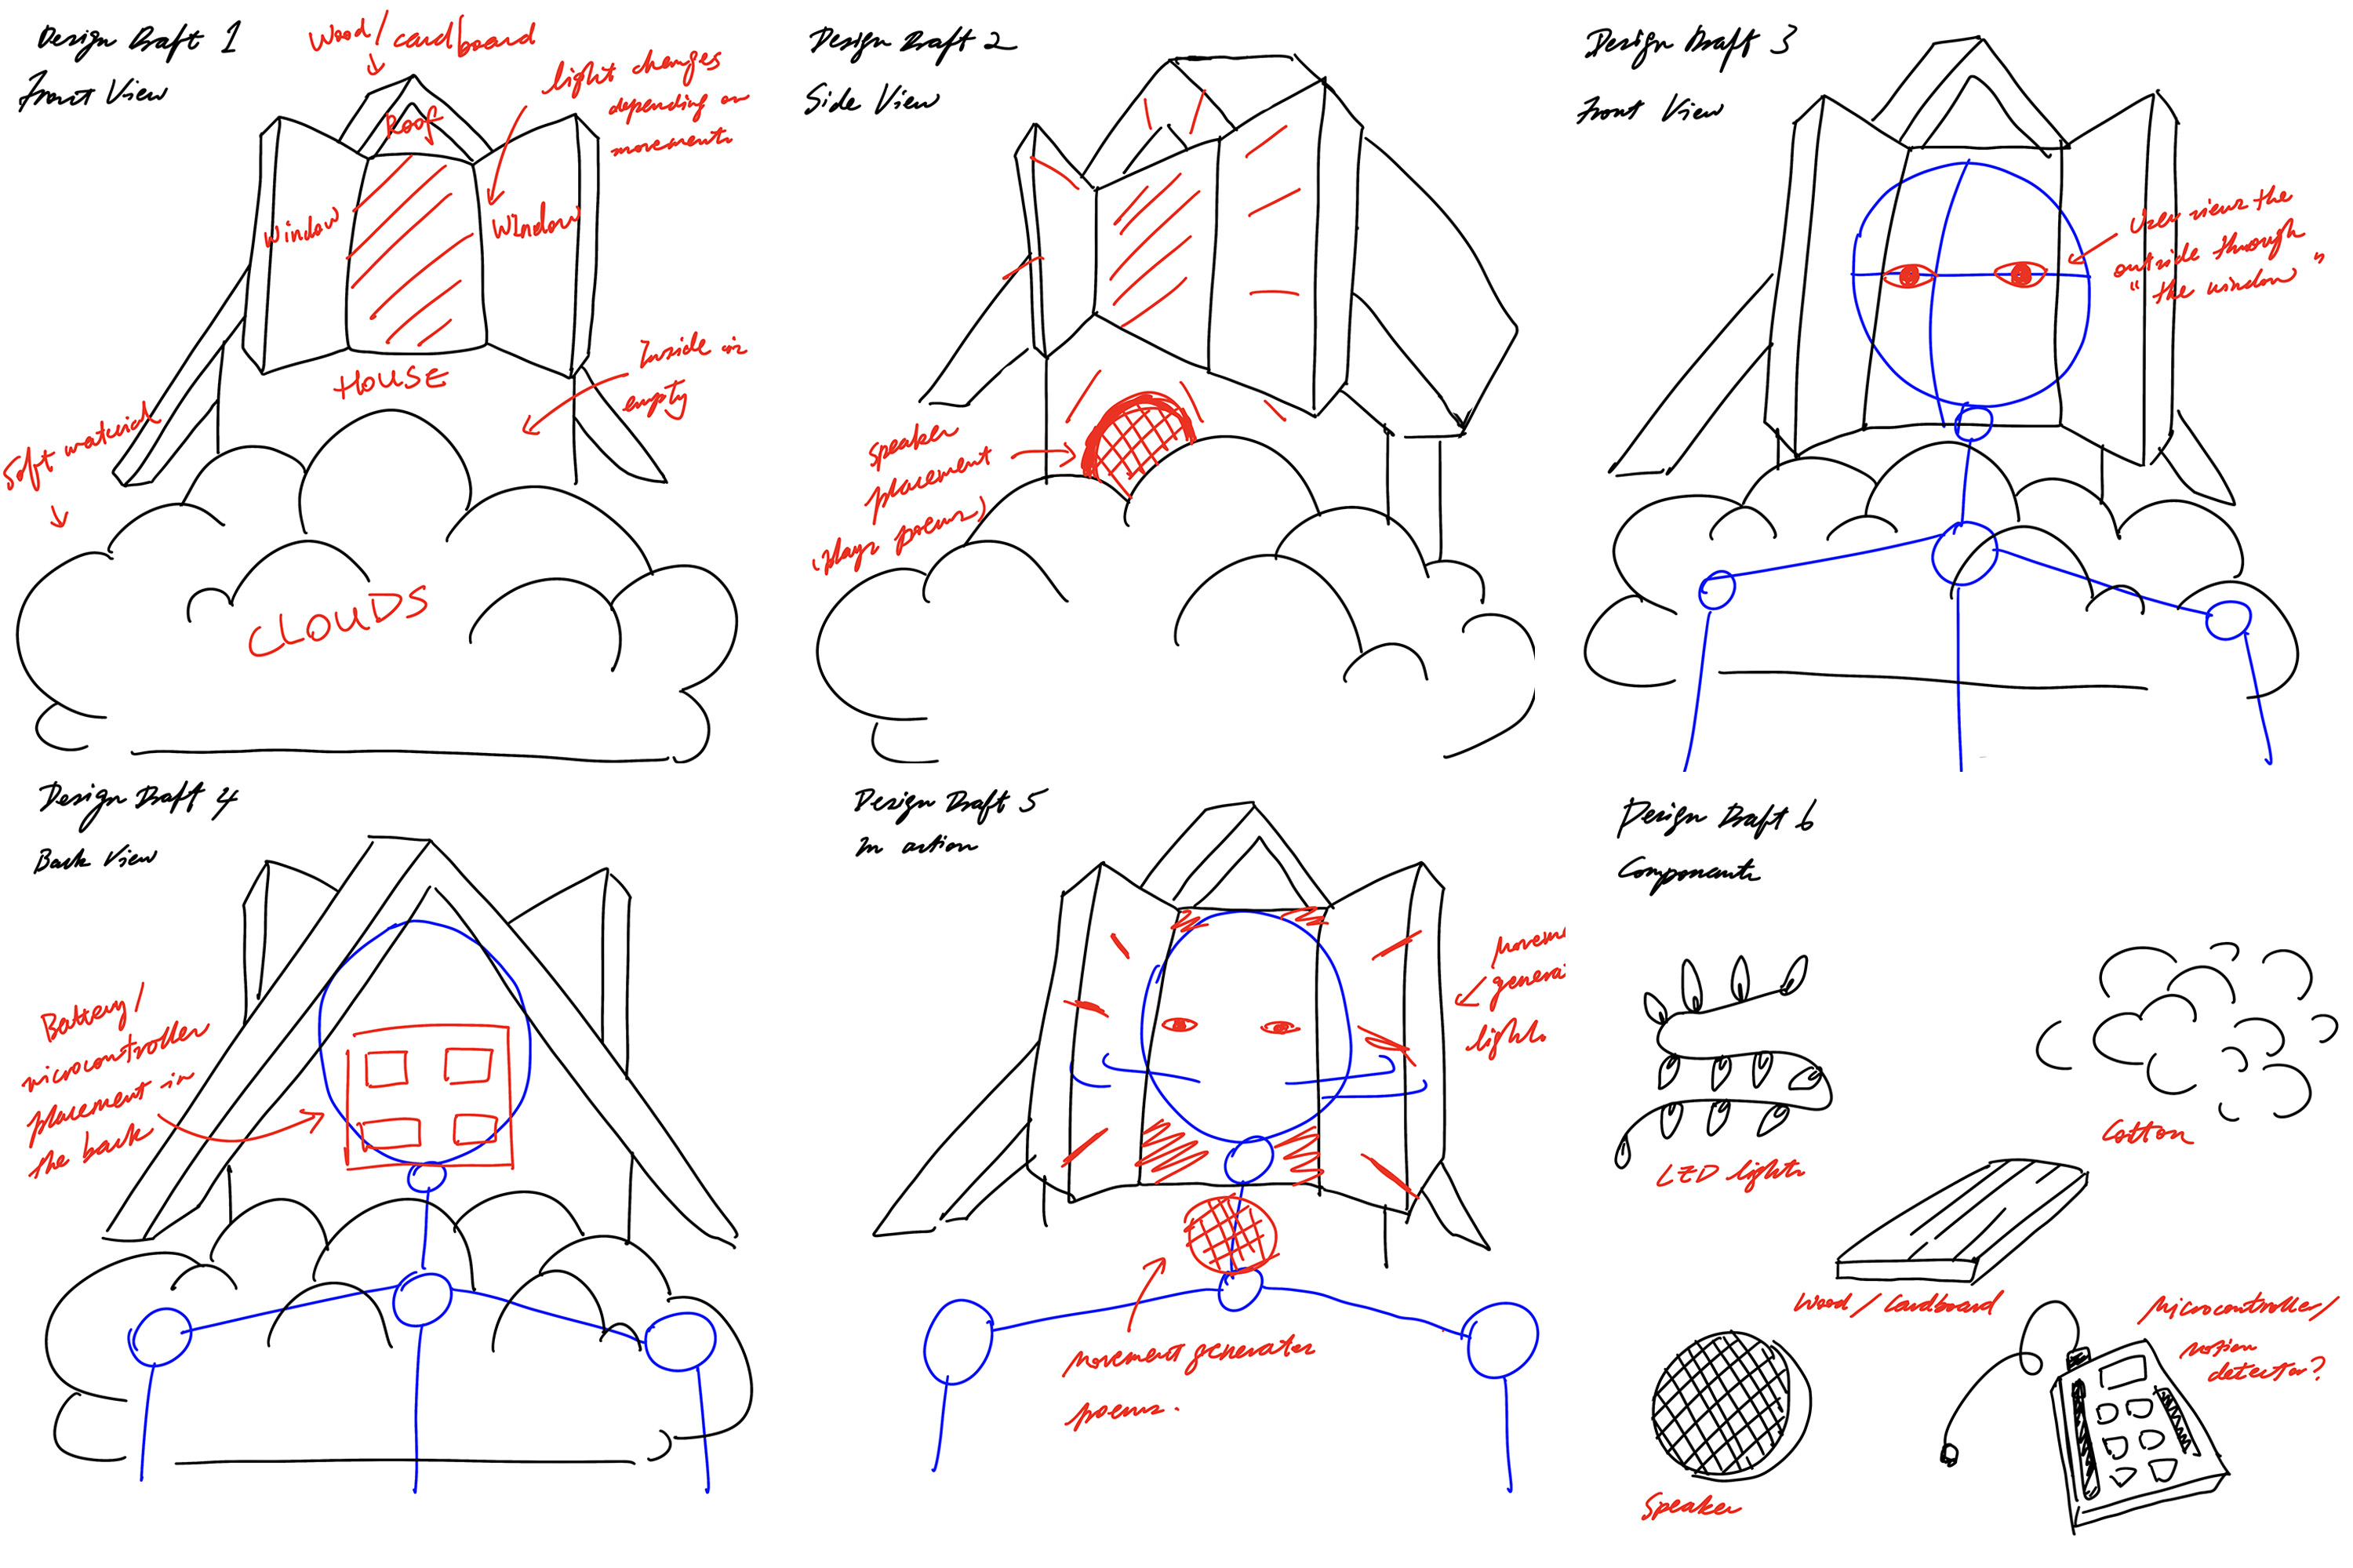 Design Draft 1
Front View
Wood/cardboard
light changes
depending on
movement
Roof
Window
Window
HOUSE
Inside is
empty
Soft material
CLOUDS
Design Draft 2
Side View
Speaker
placement
(plays poems)
Design Draft 3
Front View
User views the
outside through
"the window"
Design Draft 4
Back View
Battery/
microcontroller
placement in
the back
Design Draft 5
In action
Movem
genera
light.
Movement generator
poems.
Design Draft 6
Components
LED lights
Cotton
Wood/Cardboard
Microcontroller/
motion
detector?
Speaker